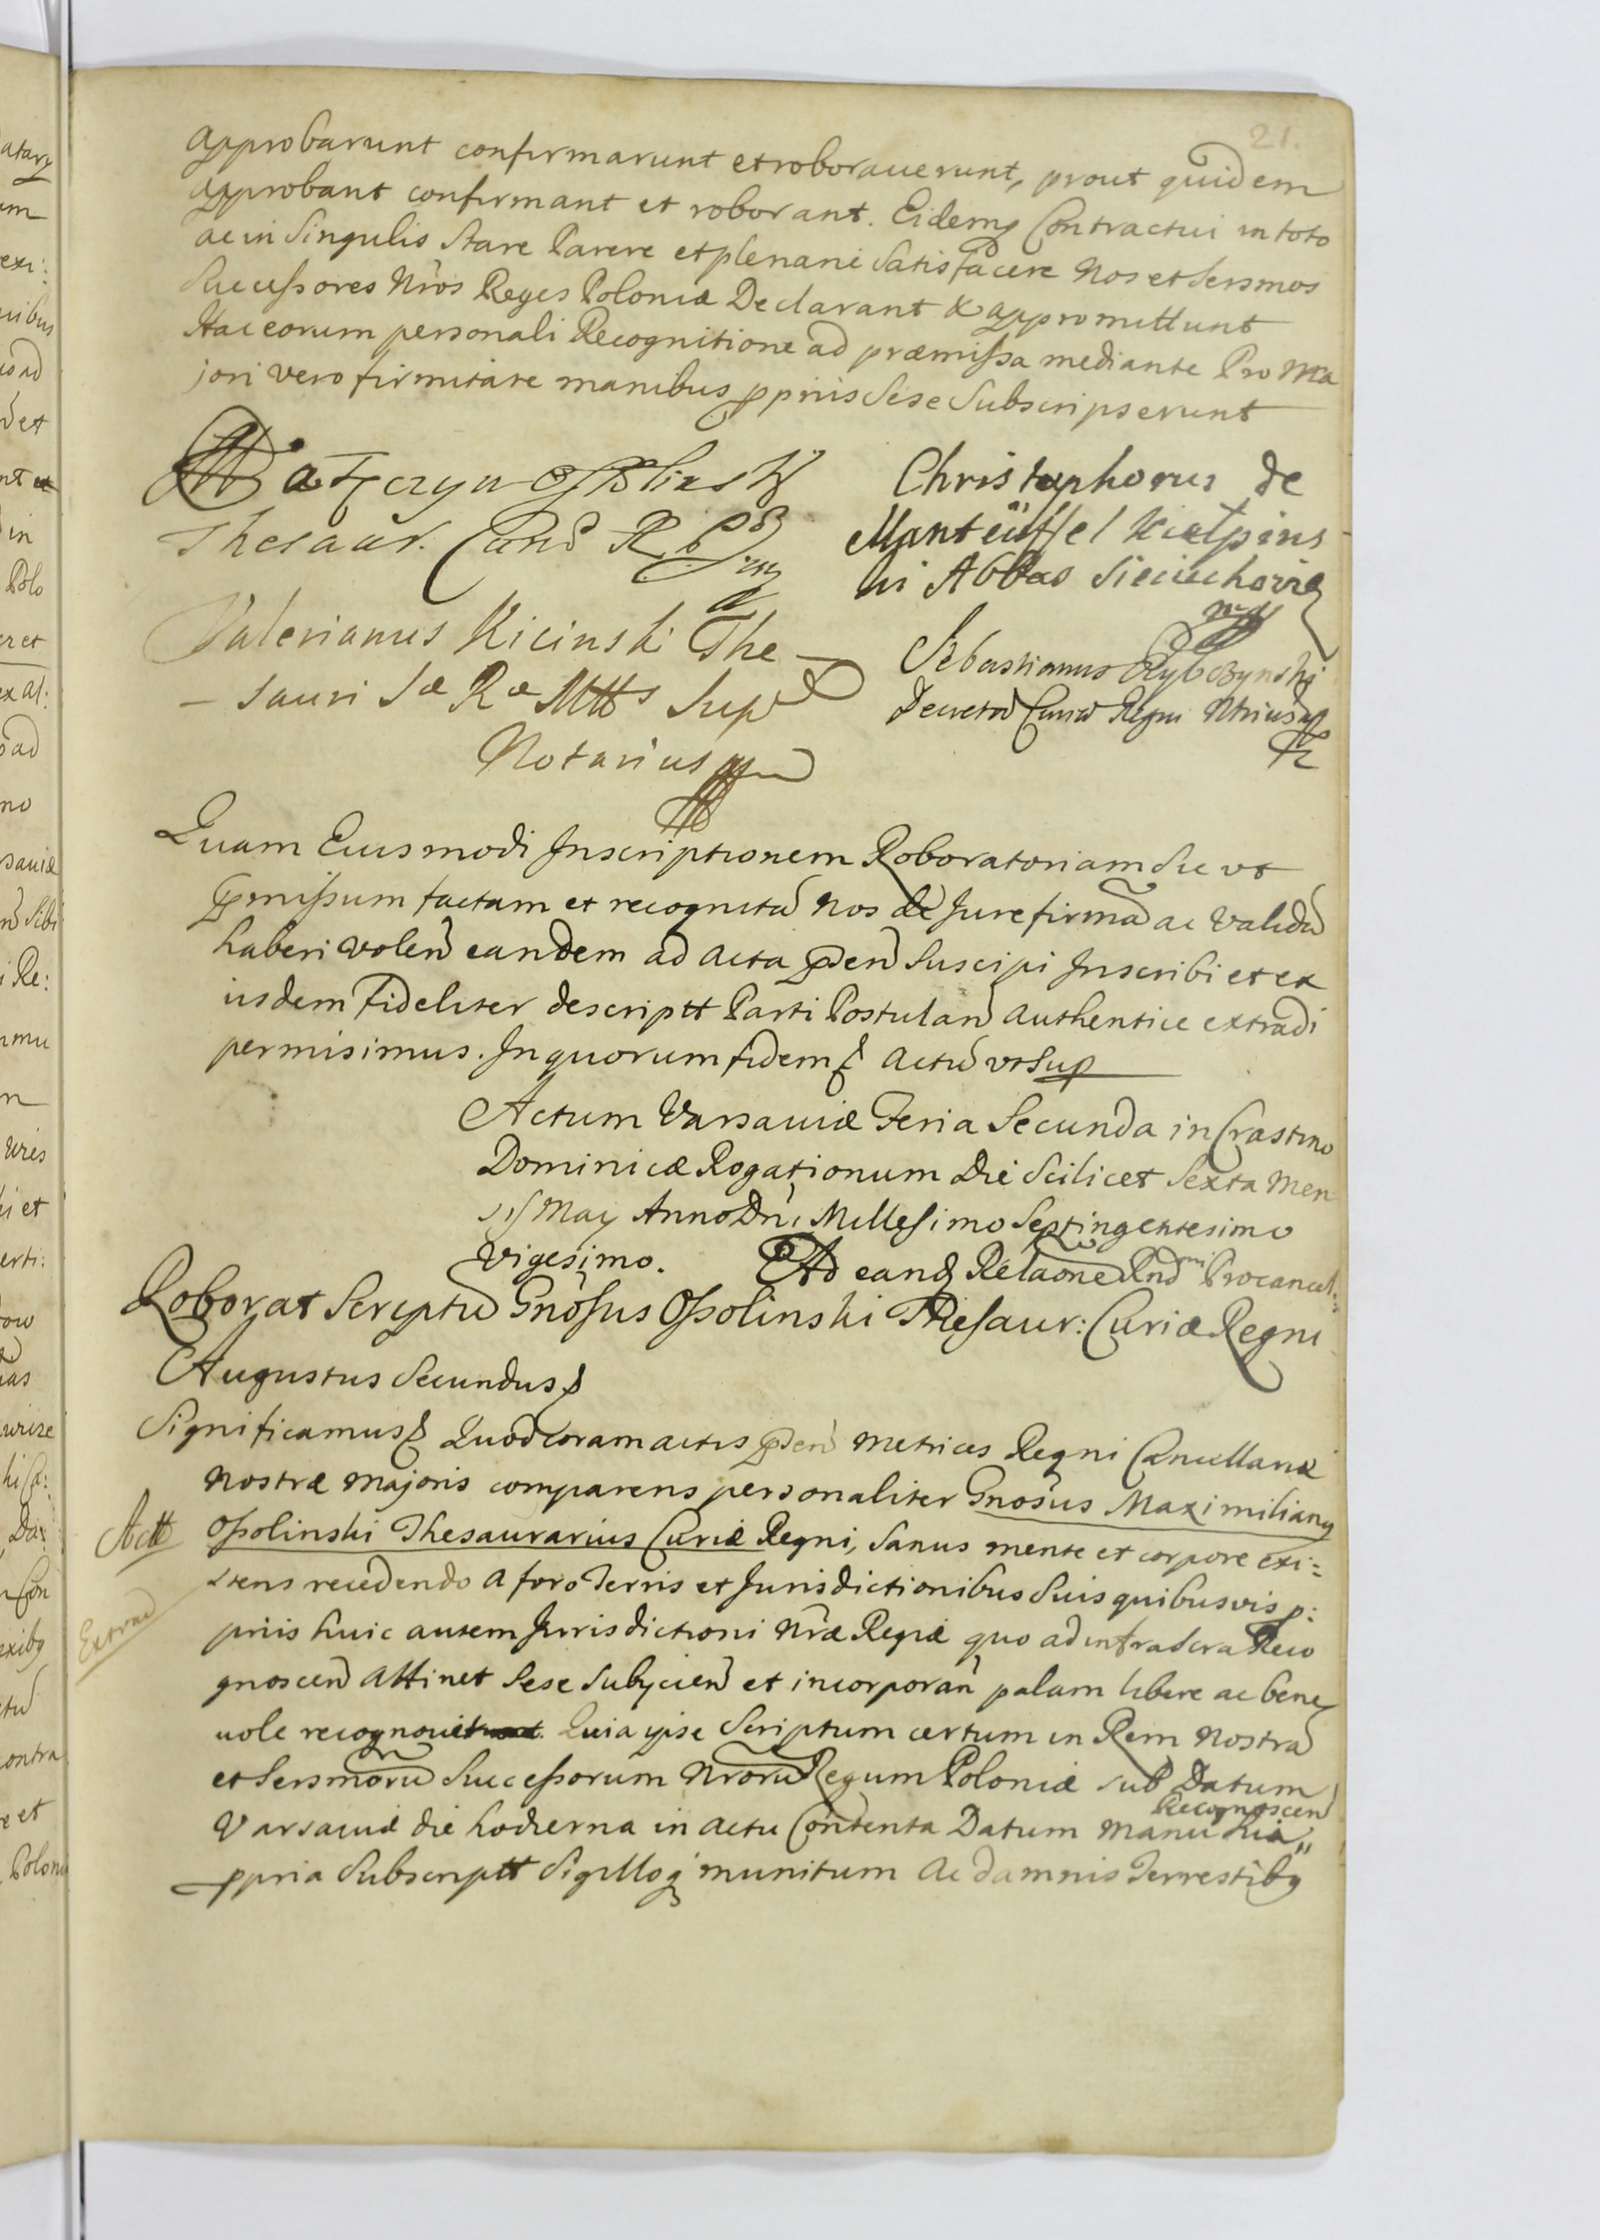 21.
approbarunt confirmarunt et roborauerunt, prout quidem
approbant confirmant et roborant. Eidemq Contractui in toto
ac in Singulis Stare Parere et plenarie Satisfacere Nos et Sersmos
Successores Nros Reges Poloniæ Declarant & appromittunt
Hac eorum personali Recognitione ad præmissa mediante Pro Ma
jori vero firmitate manibus ppriis Sese Subscripserunt
Ossolinski
Thesaur. Cur
Christophorus de
Manteüffel Kielpins
ki Abbas Sieciechovie
Valerianus Kicinski The
sauri Sæ Ræ Mtts Sup
Notarius
Sebastianus Rybczynski
Decretor Curiæ Regni Ntrius
Quam Eiusmodi Inscriptionem Roboratoriam Sic vt
pmissum factam et recognita Nos de Jure firma ac Valida
haberi volen eandem ad Acta pden Suscipi Inscribi et ex
iisdem Fideliter descriptt Parti Postulan Authentice extradi
permisimus. In quorum fidem Actu vt Sup
Actum Varsauiæ Feria Secunda in Crastino
Dominicæ Rogationum Die Scilicet Sexta Men
sis May Anno Dni Millesimo Septingentesimo
Vigesimo. Ad eand Relaone Rnd mi Procancel:
Roborat Scriptu Gnosus Ossolinski Thesaur: Curiæ Regni
Augustus Secundus
Significamus Quod coram actis pden Metrices Regni Cancellariæ
Nostræ Majoris comparens personaliter Gnosus Maximilianq
Actt
Ossolinski Thesaurarius Curiæ Regni, Sanus mente et corpore exi=
Extrad
stens recedendo a foro Terris et Jurisdictionibus Suis quibusvis p:
priis huic autem Jurisdictioni Nræ Regiæ quo ad infra Scra Reco
gnoscen attinet Sese Subjicien et incorporan palam libere ac bene
uole recognouit. Quia ipse Scriptum certum in Rem Nostra
et Sersmoru Successorum Nroru Regum Poloniæ sub Datum
Recognoscen
Varsauiæ die hodierna in actu Contenta Datum Manu Sua
ppria Subscriptt Sigilloq munitum Ac damnis Terrestibq